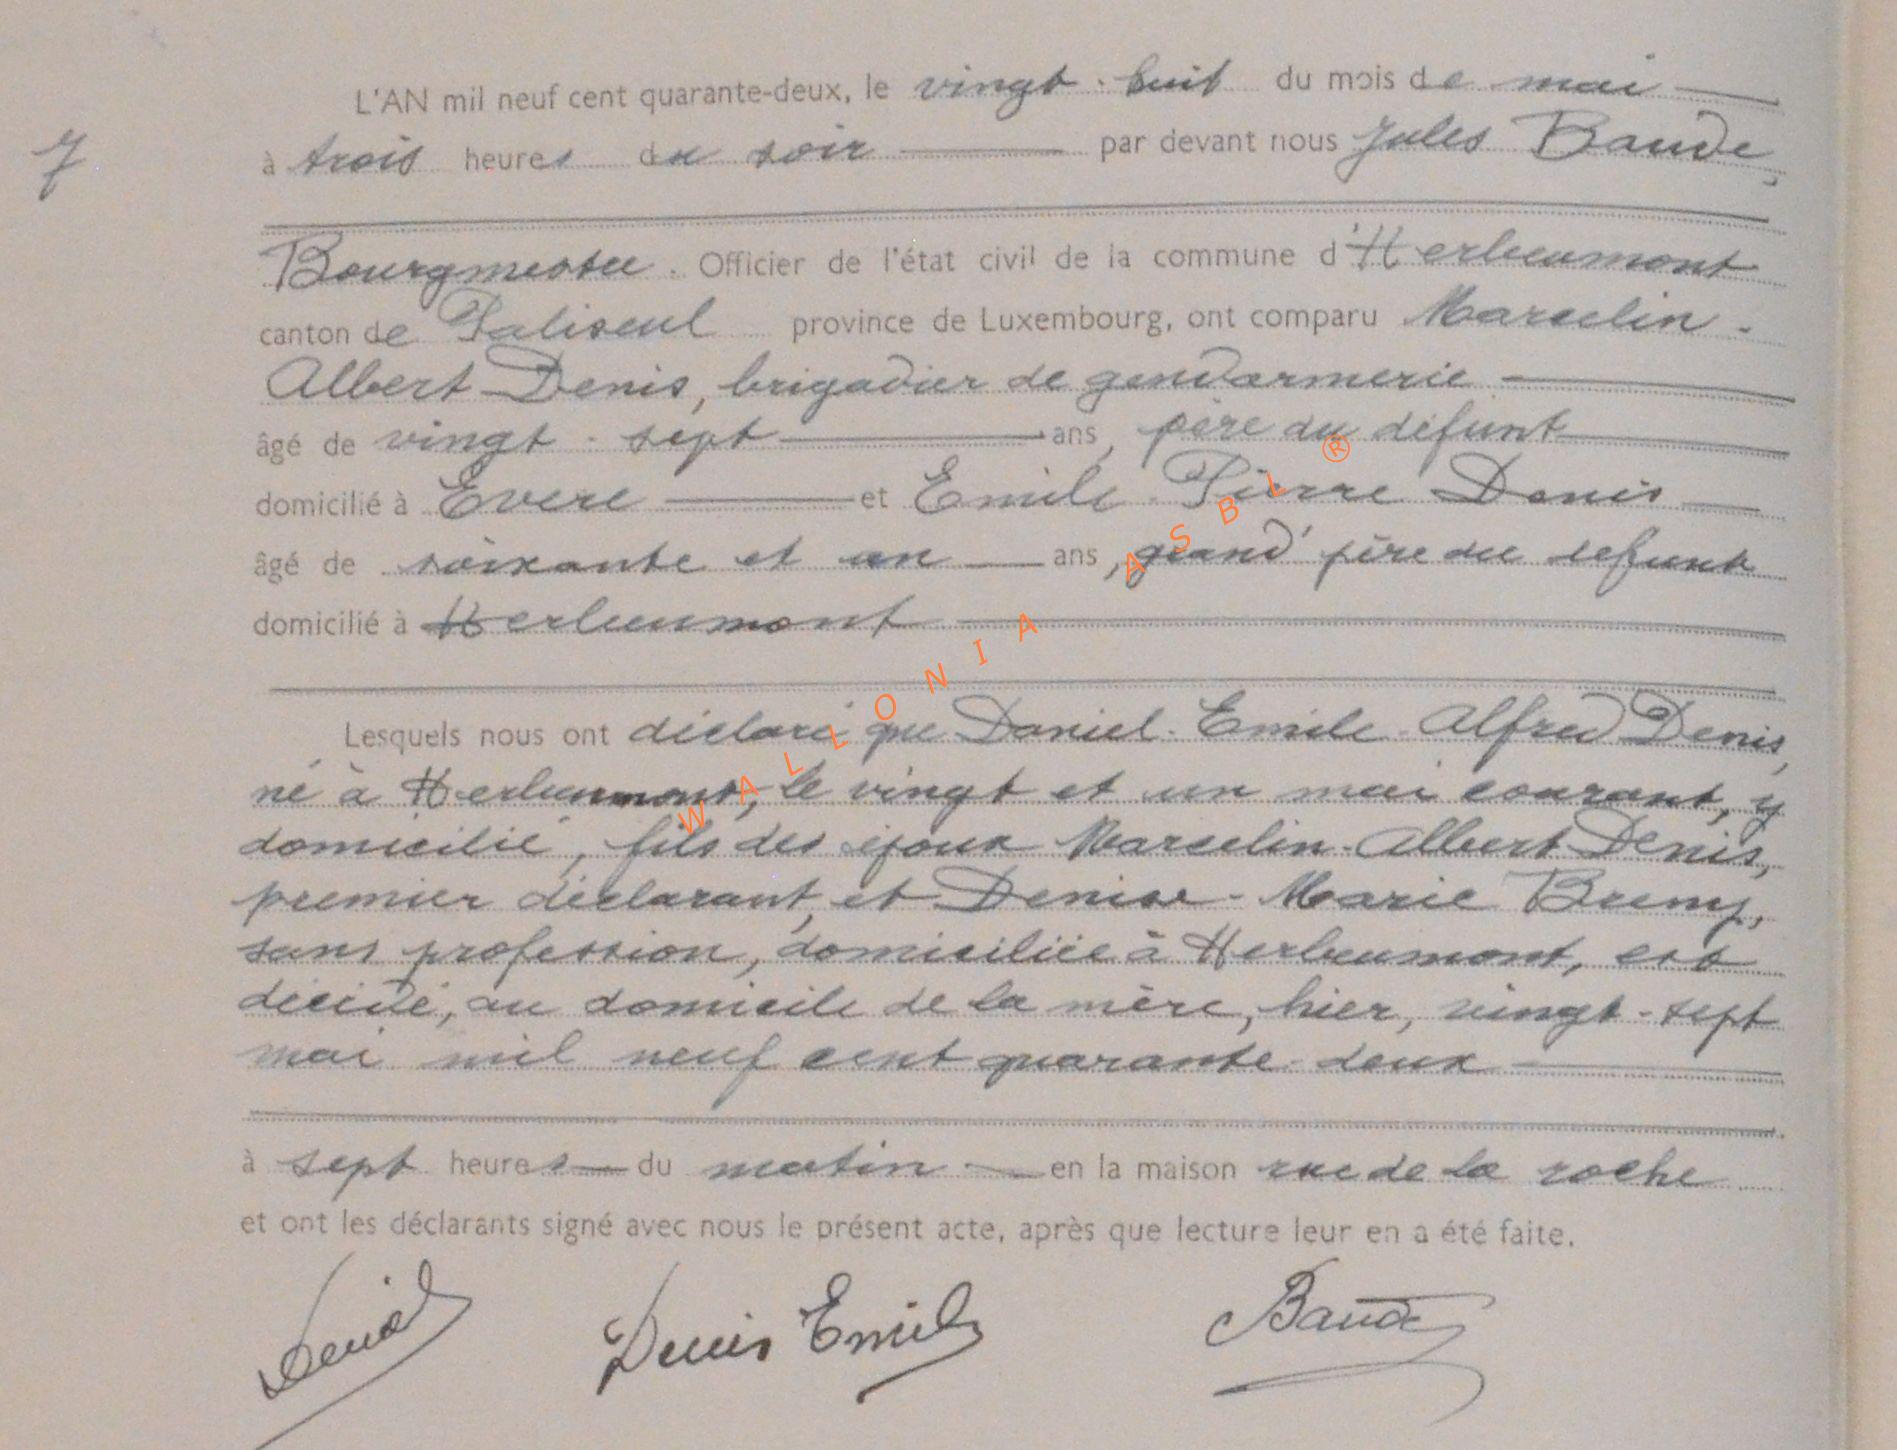 7
L'AN mil neuf cent quarante-deux, le vingt-huit du mois de mai
à trois heures du soir par devant nous Jules Baude,
Bourgmestre. Officier de l'état civil de la commune d'Herbeumont
canton de Paliseul province de Luxembourg, ont comparu Marcelin-
Albert Denis, brigadier de gendarmerie
âgé de vingt-sept ans, père du défunt
domicilié à Evere et Emile-Pierre Denis
âgé de soixante et un ans, grand'père du défunt
domicilié à Herbeumont
Lesquels nous ont déclaré que Daniel-Emile-Alfred Denis,
né à Herbeumont, le vingt et un mai courant, y
domicilié, fils des époux Marcelin-Albert Denis,
premier déclarant, et Denise-Marie Bremy,
sans profession, domiciliée à Herbeumont, est
décédé, au domicile de la mère, hier, vingt-sept
mai mil neuf cent quarante-deux
à sept heures du matin en la maison rue de la roche
et ont les déclarants signé avec nous le présent acte, après que lecture leur en a été faite.
Denis Denis Emile Baude
WALLONIA ASBL ®